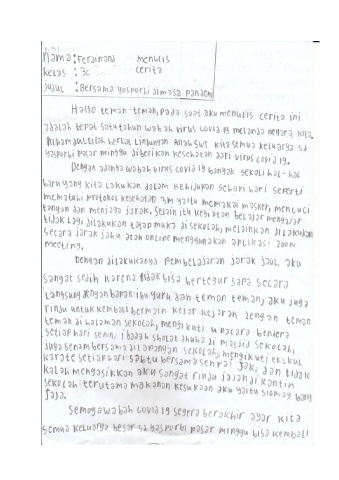 Nama : Ferdinand menulis
Kelas : 3c cerita
Judul : Bersama Yosporbi dimasa Pandemi
Hallo teman-teman, pada saat aku menulis cerita ini
adalah tepat satu tahun wabah virus covid 19 melanda negara kita.
Alhamdulillah berkat Lindungan Allah SWT kita semua keluarga SD
Yasporbi Pasar minggu diberikan kesehatan dari virus covid 19.
Dengan adanya wabah virus covid 19 banyak sekali hal-hal
baru yang kita Lakukan dalam kehidupan sehari hari seperti
mematuhi protokol kesehatan 3M yaitu memakai masker, mencuci
tangan dan menjaga jarak. Selain itu kegiatan belajar mengajar
tidak Lagi dilakukan tatap muka di sekolah, melainkan dilakukan
secara jarak jauh atau online menggunakan aplikasi zoom
meeting.
Dengan dilakukannya Pembelajaran jarak jauh aku
sangat sedih karena tidak bisa bertegur sapa secara
Langsung dengan bapak ibu guru dan teman teman, aku juga
rindu untuk kembali bermain kejar kejaran dengan teman
teman di halaman sekolah, mengikuti upacara bendera
setiap hari senin, ibadah sholat dhuha di masjid sekolah,
juga senam bersama di Lapangan sekolah, mengikuti ekskul
karate setiap hari sabtu bersama senpai Jak, dan tidak
kalah mengasikkan aku sangat rindu jajan di kantin
sekolah terutama makanan kesukaan aku yaitu siomay bang
Jaja.
Semoga wabah covid 19 segera berakhir agar kita
semua keluarga besar SD Yasporbi pasar minggu bisa kembali